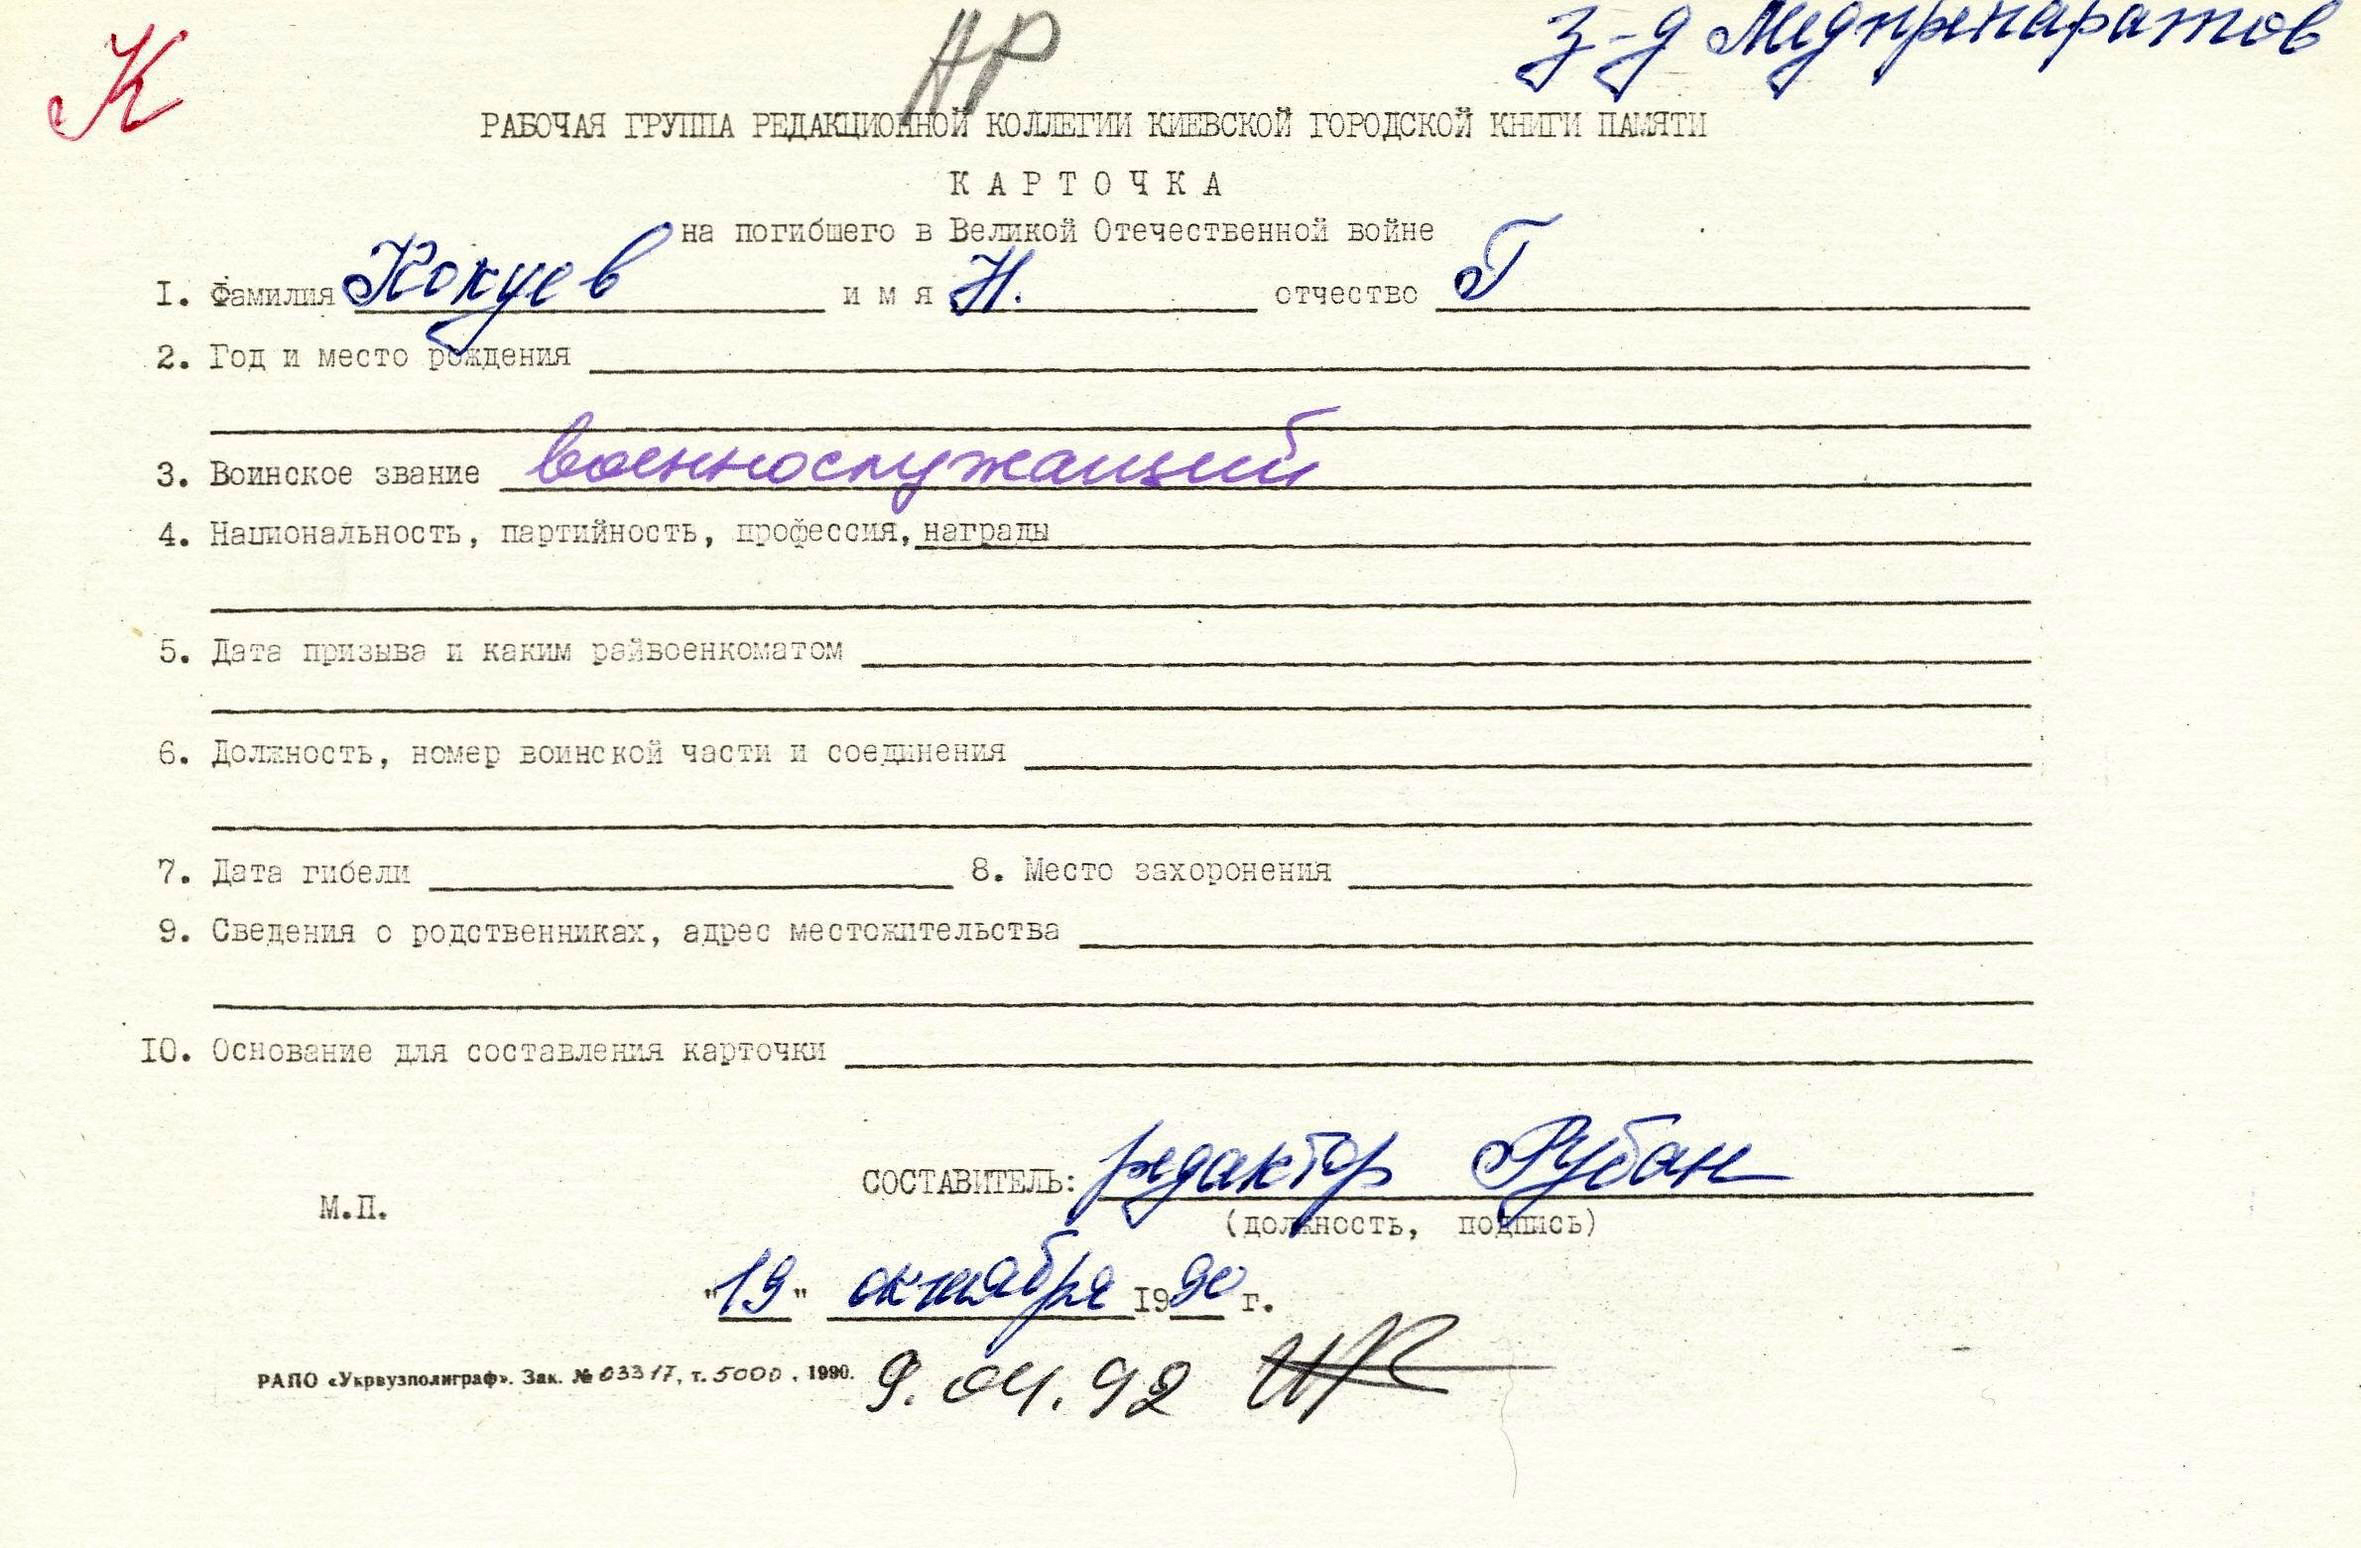 К НР з-д Медпрепаратов
РАБОЧАЯ ГРУППА РЕДАКЦИОННОЙ КОЛЛЕГИИ КИЕВСКОЙ ГОРОДСКОЙ КНИГИ ПАМЯТИ
КАРТОЧКА
на погибшего в Великой Отечественной войне
1. Фамилия Кокуев имя Н. отчество Г
2. Год и место рождения
3. Воинское звание военнослужащий
4. Национальность, партийность, профессия, награды
5. Дата призыва и каким райвоенкоматом
6. Должность, номер воинской части и соединения
7. Дата гибели 8. Место захоронения
9. Сведения о родственниках, адрес местожительства
10. Основание для составления карточки
СОСТАВИТЕЛЬ: редактор Рубан
М.П.
(должность, подпись)
"19" октября 1990 г.
РАПО «Укрвузполиграф». Зак. № 03317, т. 5000, 1990. 9.04.92